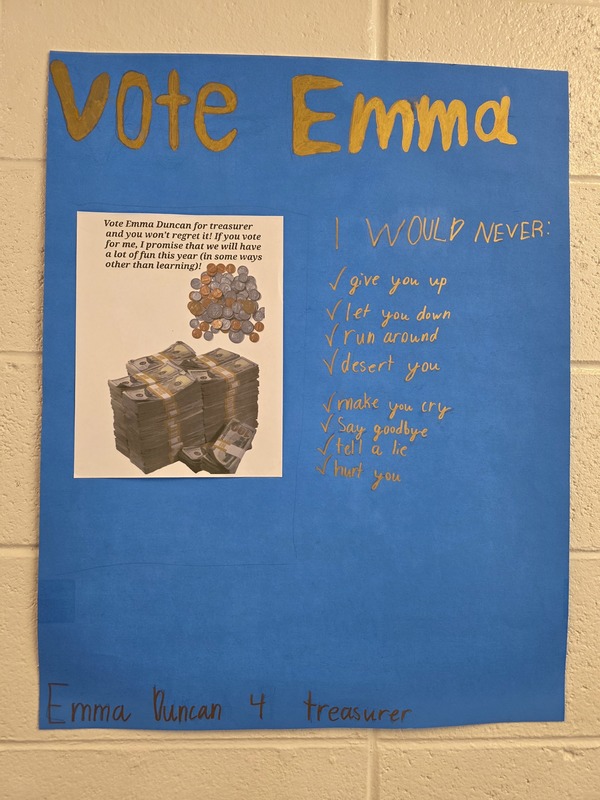 Vote Emma
Vote Emma Duncan for treasurer
and you won't regret it! If you vote
for me, I promise that we will have
a lot of fun this year (in some ways
other than learning)!
I WOULD NEVER:
✓ give you up
✓ let you down
✓ run around
✓ desert you
✓ make you cry
✓ say goodbye
✓ tell a lie
✓ hurt you
Emma Duncan 4 treasurer